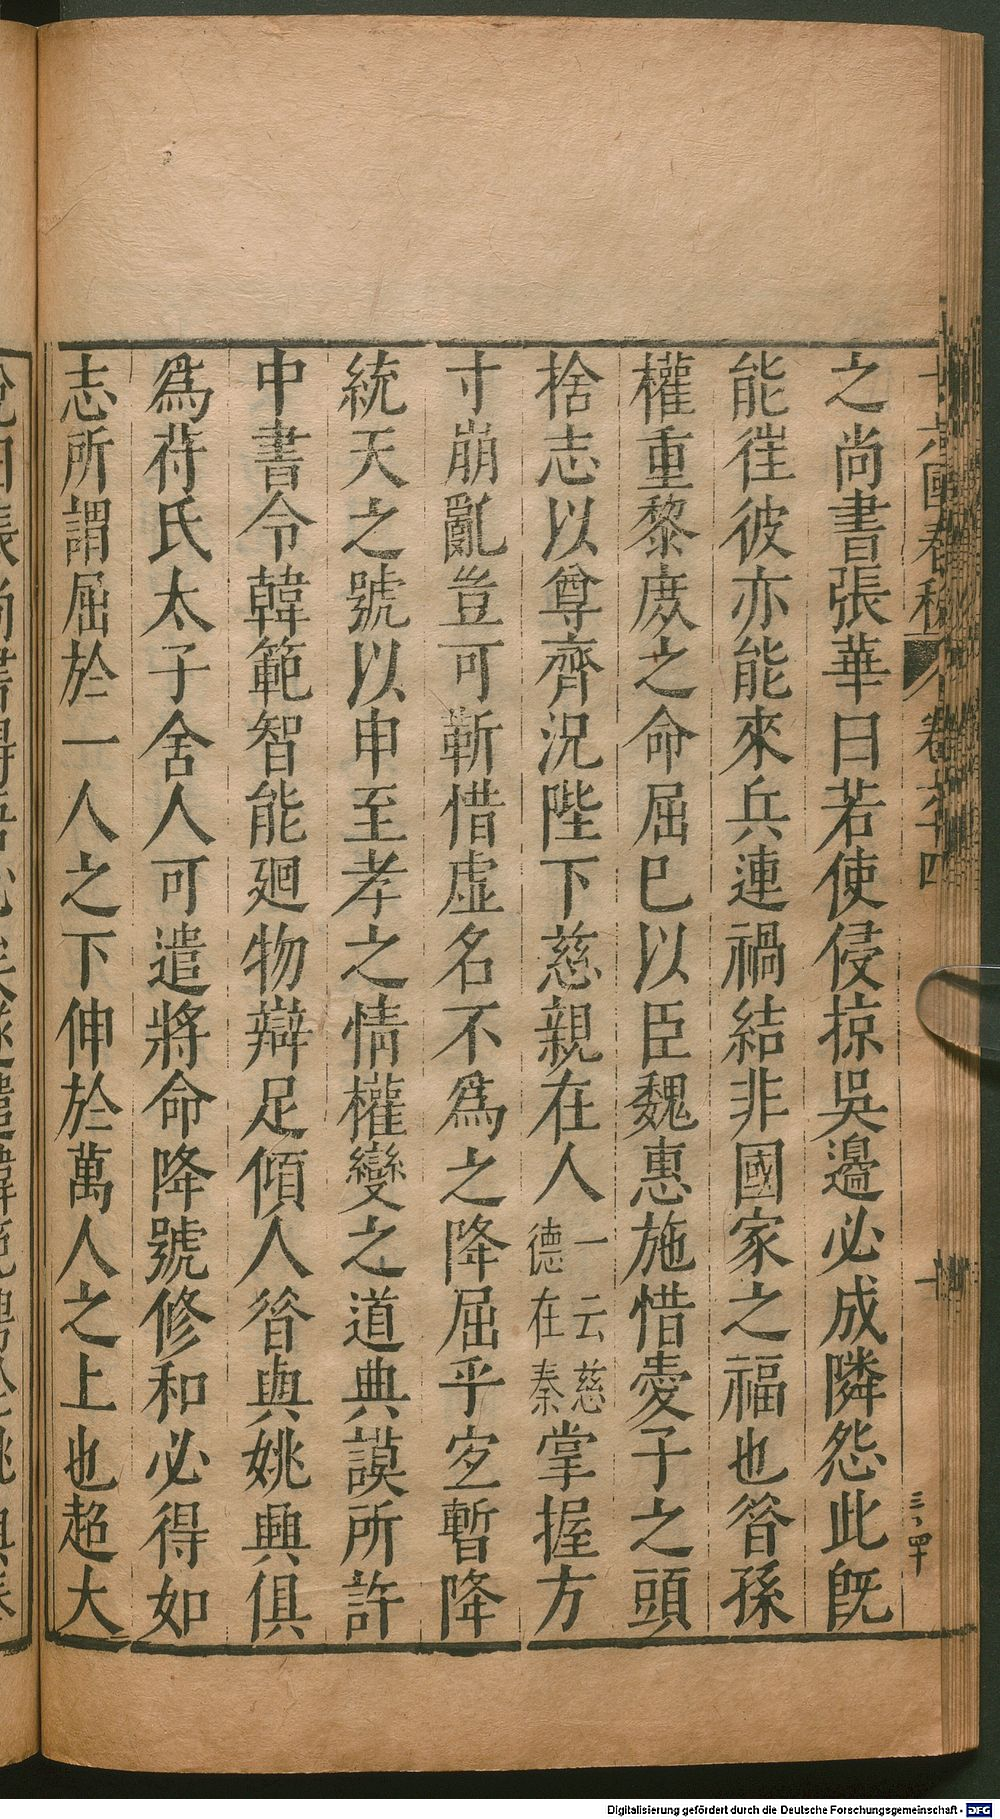 之尚書張華曰若使侵掠吳邊必成隣怨此旣
能徃彼亦能來兵連禍結非國家之福也昝孫
權重黎庶之命屈巳以臣魏惠施惜愛子之頭
捨志以尊齊況陛下慈親在人一云慈德在秦掌握方
寸崩亂豈可靳惜虛名不爲之降屈乎宐暫降
統天之號以申至孝之情權變之道典謨所許
中書令韓範智能廻物辯足傾人昝與姚興俱
爲苻氏太子舍人可遣將命降號修和必得如
志所謂屈於一人之下伸於萬人之上也超大
十六國春秋
三、四十
Digitalisierung gefördert durch die Deutsche Forschungsgemeinschaft - DFG